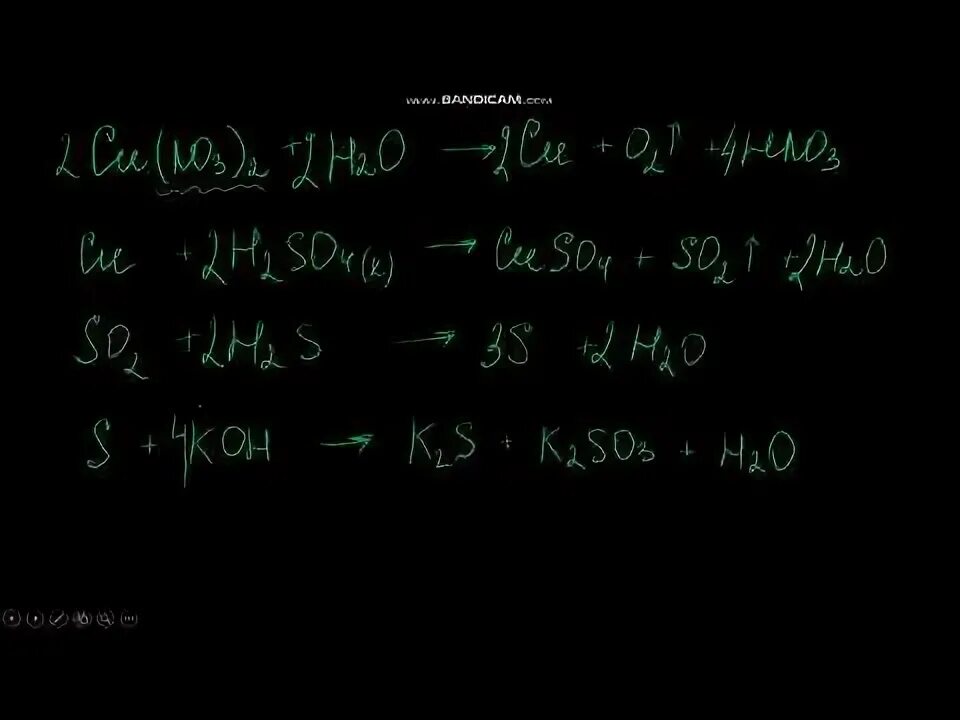 www.BANDICAM.com
2Cu(NO₃)₂ + 2H₂O → 2Cu + O₂↑ + 4HNO₃
Cu + 2H₂SO₄(к.) → CuSO₄ + SO₂↑ + 2H₂O
SO₂ + 2H₂S → 3S + 2H₂O
S + 4KOH → K₂S + K₂SO₃ + H₂O